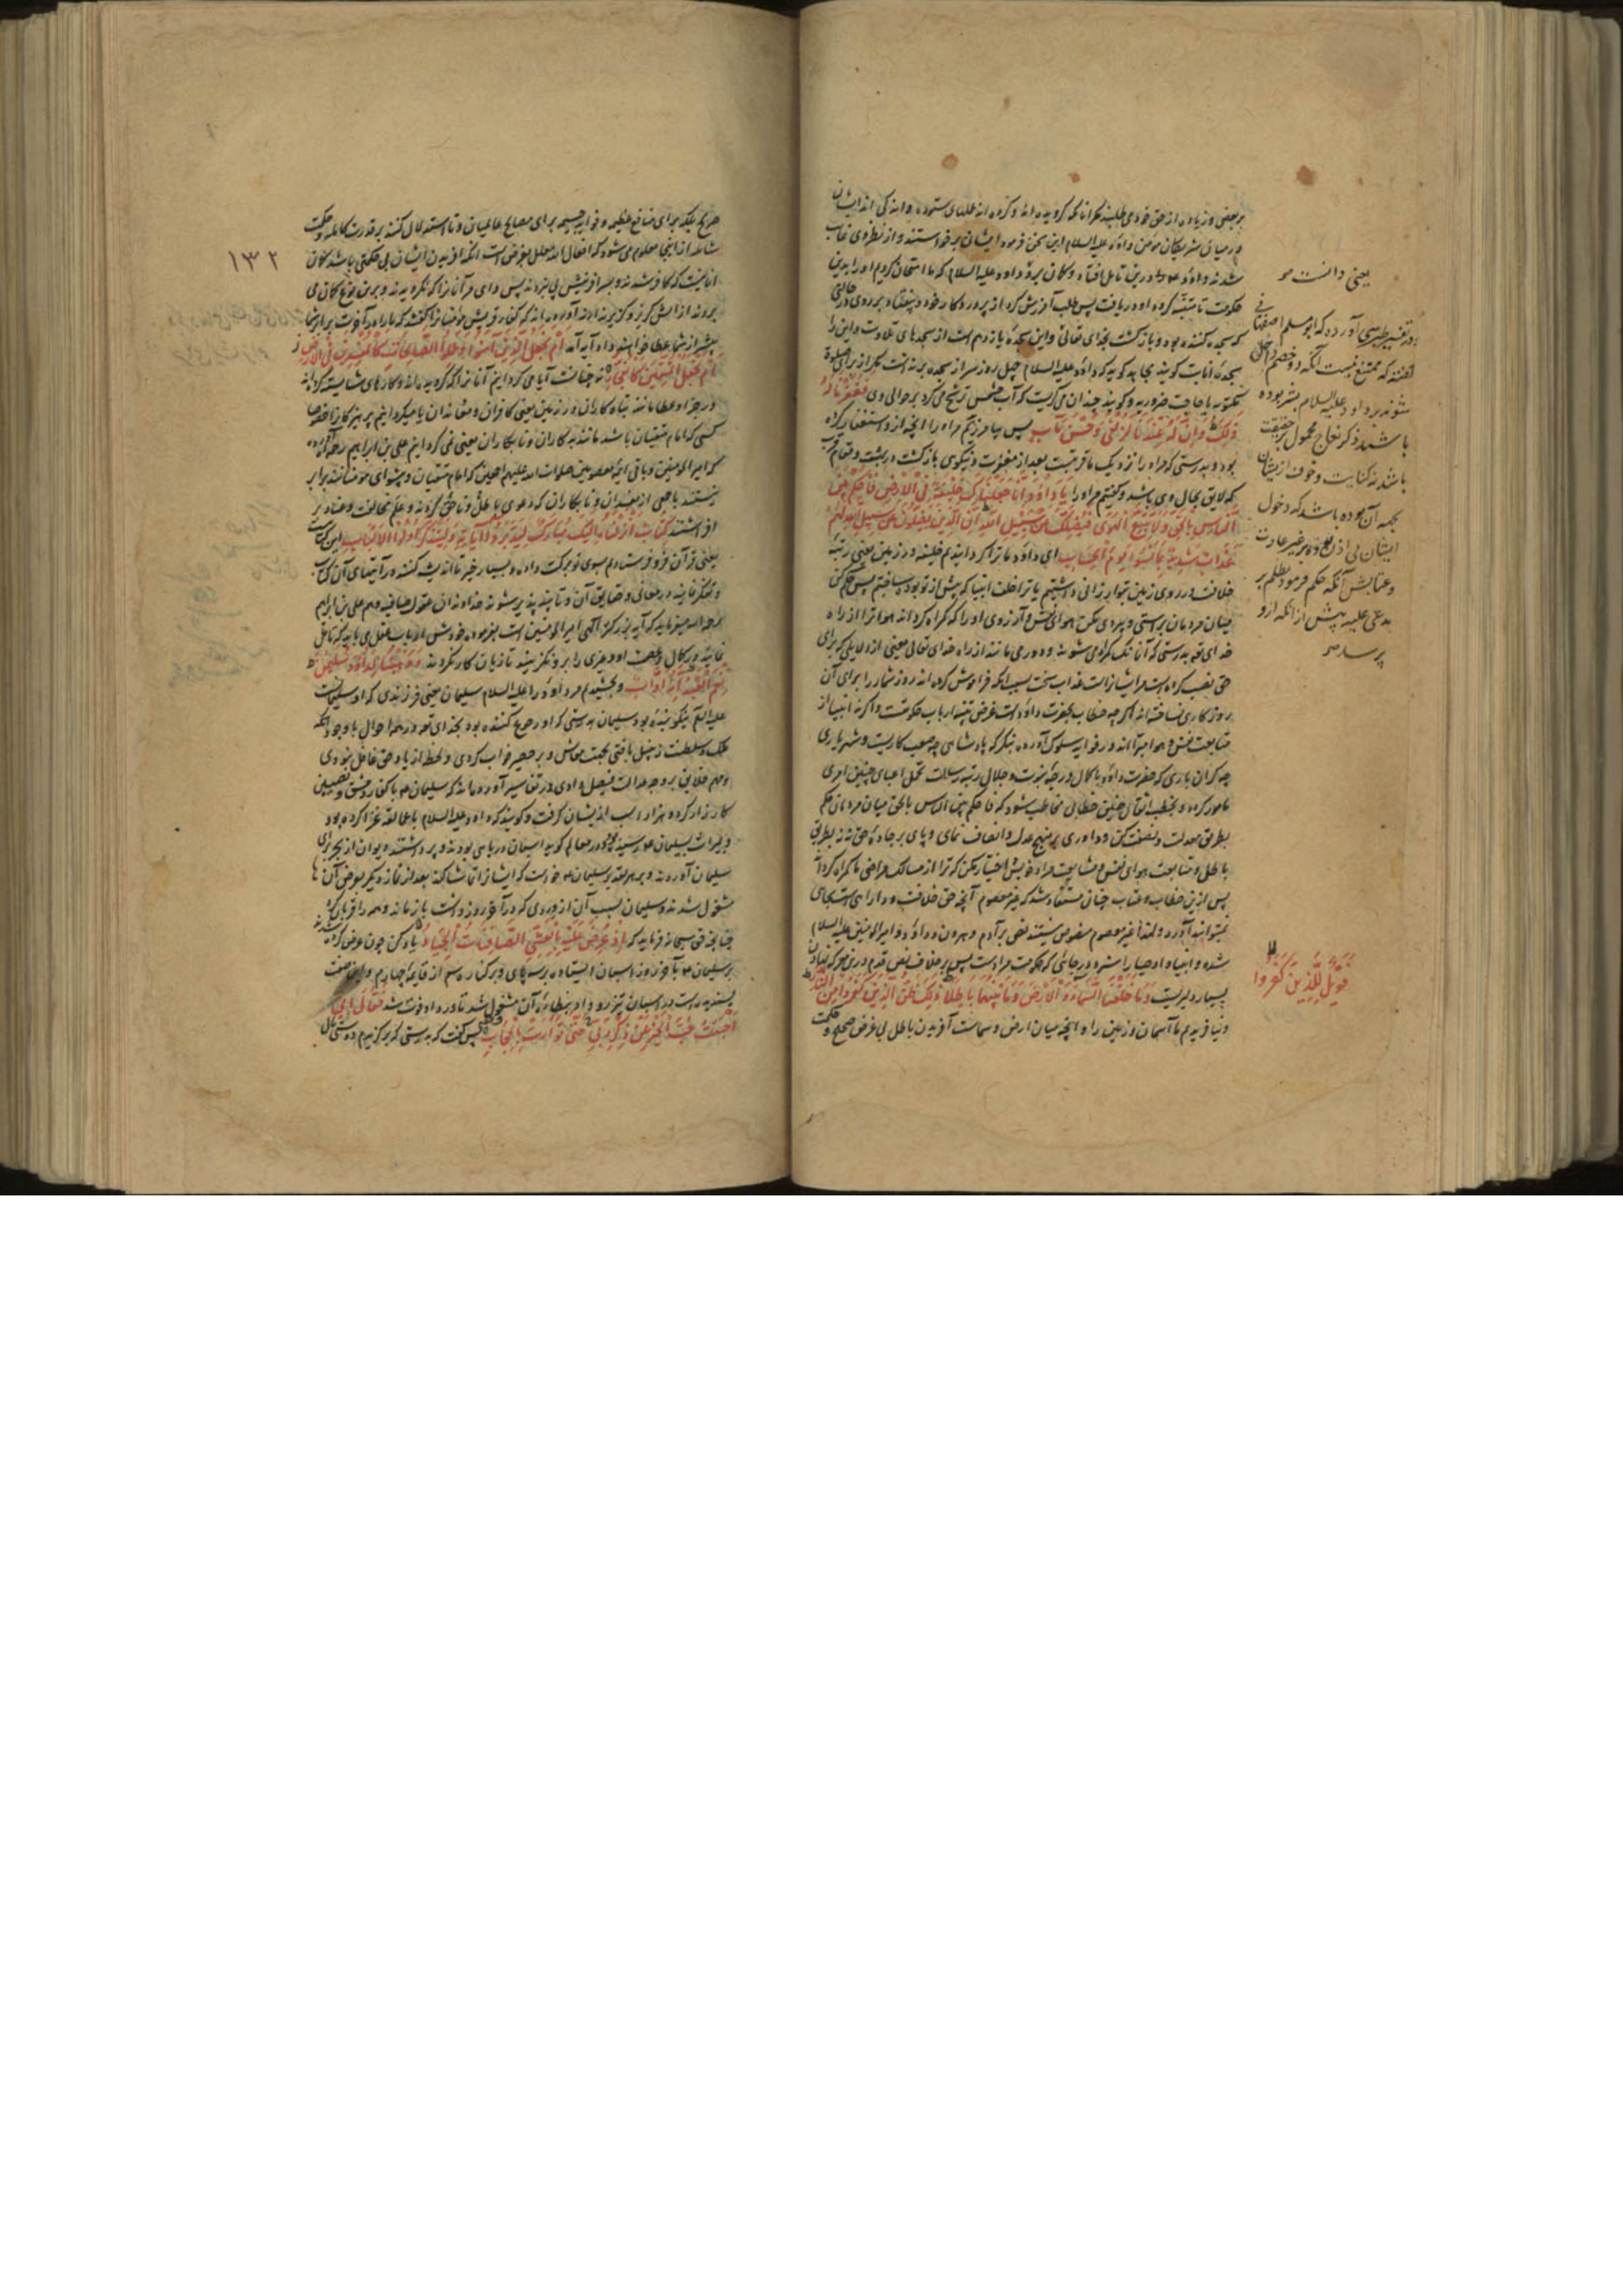 بر بعضی و زیاده از حق خود می طلبند مکر آنانکه کرویده اند و کرده اند عملهای ستوده و اندکی اند ایشان
در میان شریکان مومن داود علیه السلام این سخن فرمود ایشان برخواستند و از نظر وی غایب
شدند و داود درین تامل افتاد و کمان برد داود علیه السلام که ما امتحان کردیم او را بدین
حکومت تا متنبه کردد او دریافت پس طلب آمرزش کرد از پروردکار خود و بیفتاد بر روی در حالتی
که سجده کننده بود و بازکشت بخدای تعالی و این سجده یازدهم است از سجدهای تلاوت و این را
سجده انابت کویند می کویند که داود علیه السلام چهل روز سر از سجده برنداشت مکر از برای صلوة
مکتوبه یا حاجت ضروریه و کویند چندان می کریست که آب چشمش ترشح می کرد بر حوالی وی فغفرنا له
ذلک و ان له عندنا لزلفی و حسن مآب پس بیامرزیدیم مر او را آنچه از و استغفار کرده
بود و بدرستی که مر او را نزدیک ما قربتست بعد از مغفرت و نیکوی بازکشت در بهشت و مقام قرب
که لایق بحال وی باشد و کفتیم مر او را یا داود انا جعلناک خلیفة فی الارض فاحکم بین
الناس بالحق و لا تتبع الهوی فیضلک عن سبیل الله ان الذین یضلون عن سبیل الله لهم
عذاب شدید بما نسوا یوم الحساب ای داود ما ترا کردانیدیم خلیفه در زمین یعنی رتبه
خلافت در روی زمین بتو ارزانی داشتیم یا ترا خلف انبیا که پیش از تو بود ساختیم پس حکم کن
میان مردمان براستی و پیروی مکن هوای نفس و آرزوی او را که کمراه کرداند هوا ترا از راه
خدای تع بدرستی که آنانکه کمراه می شوند و دور می مانند از راه خدای تعالی یعنی از دلایلی که برای
حق نصب کرده است مر ایشانراست عذاب سخت بسبب آنکه فراموش کرده اند روز شمار را و برای آن
روز کاری نساخته اند اکرچه خطاب بحضرت داود است غرض تنبیه ارباب حکومتست و اکرنه انبیا از
متابعت نفس و هوا مبرااند و در فواید سلوک آورده بنکر که پادشاهی چه صعب کاریست و شهریاری
چه کران باری که حضرت داود با کمال درجه نبوت و جلال رتبه رسالت تحمل اعبای چنین امری
مامور کردد و بخطب اثقال چنین خطابی مخاطب شود که فاحکم بین الناس بالحق میان مردمان حکم
بطریق معدلت و نصفت کن و داوری بر منهج عدل و انصاف نمای و پای بر جاده حق نه نه بطریق
باطل و متابعت هوای نفس و متابعت مراد خویش اختیار مکن که ترا از مسالک مراضی ما کمراه کرداند
پس ازین خطاب و عتاب چنان مستفاد شد که غیر معصوم آنچه حق خلافت و دارای است بجای
نمیتواند آورد و لهذا غیر معصوم منصوص نیستند نص بر آدم و هرون و داود و امیر المومنین علیه السلام
شده و انبیا و اوصیا را
بسیار دلیریست و ما خلقنا السماء و الارض و ما بینهما باطلا ذلک ظن الذین کفروا من النار
و نیافریدیم ما آسمان و زمین را و آنچه میان ارض و سماست آفریدن باطل بی غرض صحیح و حکمت
یعنی دانست
و در تفسیر طبرسی آورده که ابو مسلم اصفهانی
کفته که ممتنع نیست آنکه دو خصم داخل
شوند بر داود علیه السلام بشر بوده
باشند و ذکر نعاج محمول بر حقیقت
باشد نه کنایت و خوف از ایشان
بجهه آن بوده باشد که دخول
ایشان بی اذن بوده بر غیر عادت
و عتابش آنکه حکم فرمود بظلم بر
مدعی علیه پیش از آنکه از و
پرسد
فویل للذین کفروا
۱۳۲
صریح بلکه برای منافع عظیمه و فواید جسیمه برای مصالح عالمیان و تا استدلال کنند بر قدرت کامله و حکمت
شامله از اینجا معلوم می شود که افعال الله معلل بغرض است آنکه آفریدن ایشان بی حکمتی باشد کمان
آنانیست که کافر شدند و بسر آفرینش پی نبردند پس وای مر آنانرا که نکرویدند و برین نوع کمان می
بردند از آتش آورده اند که کفار قریش مومنانرا کفتند که ما را در آخرت برابر شما
بیشتر از شما عطا خواهند داد آیه آمد ام نجعل الذین آمنوا و عملوا الصالحات کالمفسدین فی الارض
ام نجعل المتقین کالفجار نه چنانست آیا می کردانیم آنانرا که کرویده اند و کارهای شایسته کرده اند
در جزا و عطا مانند تباه کاران در زمین یعنی کافران و مفسدان یا میکردانیم پرهیزکارانرا خصوصا
کسی که امام متقیان باشد مانند بدکاران و نابکاران یعنی نمی کردانیم علی بن ابراهیم رحمه الله آورده
که امیر المومنین و باقی ائمه معصومین صلوات الله علیهم اجمعین که امام متقیان و پیشوای مومنانند برابر
نیستند با جمعی از مفسدان و نابکاران که دعوی باطل و ناحق کردند و علم مخالفت و عناد بر
افراشتند کتاب انزلناه الیک مبارک لیدبروا آیاته و لیتذکر اولوا الالباب این کتابست
یعنی قرآن فرو فرستادیم بسوی تو برکت داده و بسیار خیر تا اندیشه کنند در آیتهای آن کتاب
و تفکر نمایند در معانی و حقایق آن و تا پند پذیر شوند خداوندان عقول صافیه و هم علی بن ابراهیم
رحمه الله میفرماید که
نماید در کمال و عصمت او و غیری را برو نکزیند تا زیان کار نکردند و وهبنا لداود سلیمن
نعم العبد انه اواب و بخشیدیم مر داود را علیه السلام سلیمان یعنی فرزندی که او سلیمانست
علیه السلم نیکو بنده بود سلیمان بدرستی که او رجوع کننده بود بخدای تع در همه احوال با وجود آنکه
ملک و سلطنت زنبیل بافتی بجهت معاش و بر حصیر خواب کردی و لحظه از یاد حق غافل نبودی
و مهم خلایق بر وجه عدالت فیصل دادی و در تفاسیر آورده اند که سلیمان با کفار دمشق و نصیبین
کارزار کرد و هزار اسب از ایشان کرفت و کویند که داود علیه السلام با عمالقه غزا کرده بود
و بمیراث بسلیمان رسید و در معالم کوید اسبان دریایی بودند و پر داشتند دیوان از بحر برای
سلیمان آوردند و بهر تقدیر سلیمان خواست که ایشانرا تماشا کند بعد از نماز دیکر بعرض آن
مشغول شدند و سلیمان بسبب آن از وردی که در آخر روز داشت باز ماند و همه را قربان کرد
چنانچه حق سبحانه فرماید که اذ عرض علیه بالعشی الصافنات الجیاد یاد کن چون عرض کرده شدند
بر سلیمان بآخر روز اسبان ایستاده بر سه پای و بر کنار سم از قائمه چهارم و این صفت
پسندیده است در اسبان تیزرو و او بنظاره آن مشغول شد تا ورد او فوت شد فقال انی
احببت حب الخیر عن ذکر ربی حتی توارت بالحجاب پس کفت که بدرستی که برکزیدم دوستی مال